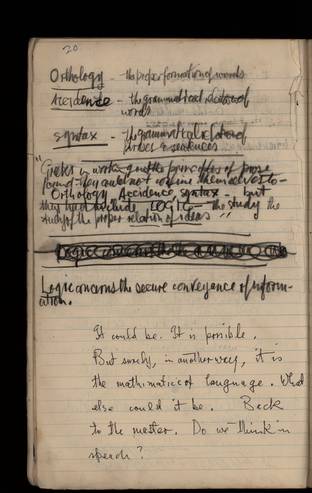 20
Orthology - the proper formation of words
Accidence - the grammatical relation of
words
Syntax - the grammatical relation of
words & sentences
"Greeks in working out the principles of prose
found they could not confine themselves to -
Orthology Accidence, Syntax - but
they had include LOGIC - the study of the
study of the proper relation of ideas"
Logic concerns the secure conveyance of inform-
ation.
It could be. It is possible.
But surely, in another way, it is
the mathematics of language. What
else could it be. Back
to the matter. Do we think in
speech?